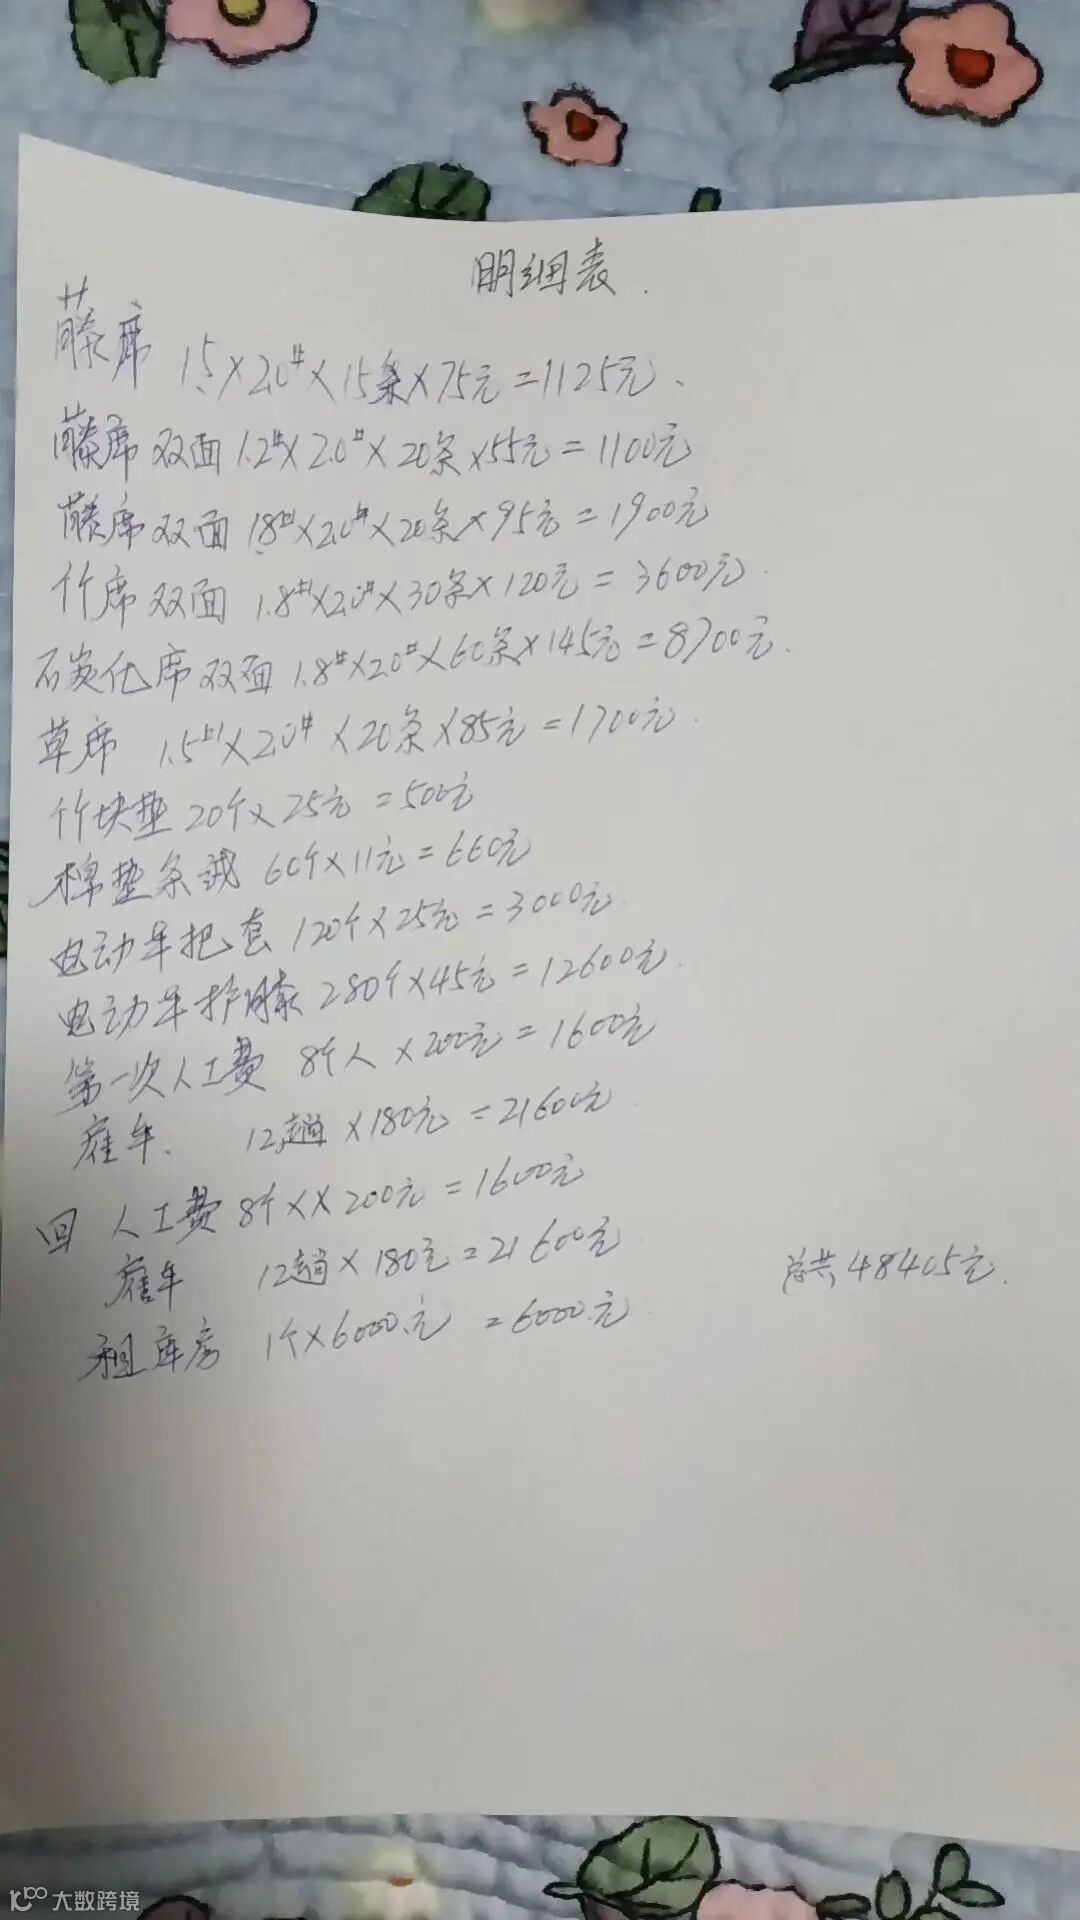 明细表.
藤席 1.5×2.0米×15条×75元=1125元、
藤席双面1.2米×2.0米×20条×55元=1100元
藤席双面1.8米×2.0米×20条×95元=1900元
竹席双面1.8米×2.0米×30条×120元=3600元.
石炭化席双面1.8米×2.0米×60条×145元=8700元.
草席 1.5米×2.0米×20条×85元=1700元.
竹块垫20个×25元=500元
棉垫条绒 60个×11元=660元
电动车把套120个×25元=3000元.
电动车护膝280个×45元=12600元.
第一次人工费 8个人×200元=1600元
雇车、 12趟×180元=21600元.
回 人工费8个××200元=1600元
雇车 12趟×180元=21600元
总共48405元.
租库房 1个×6000.元 =6000.元.
大数跨境